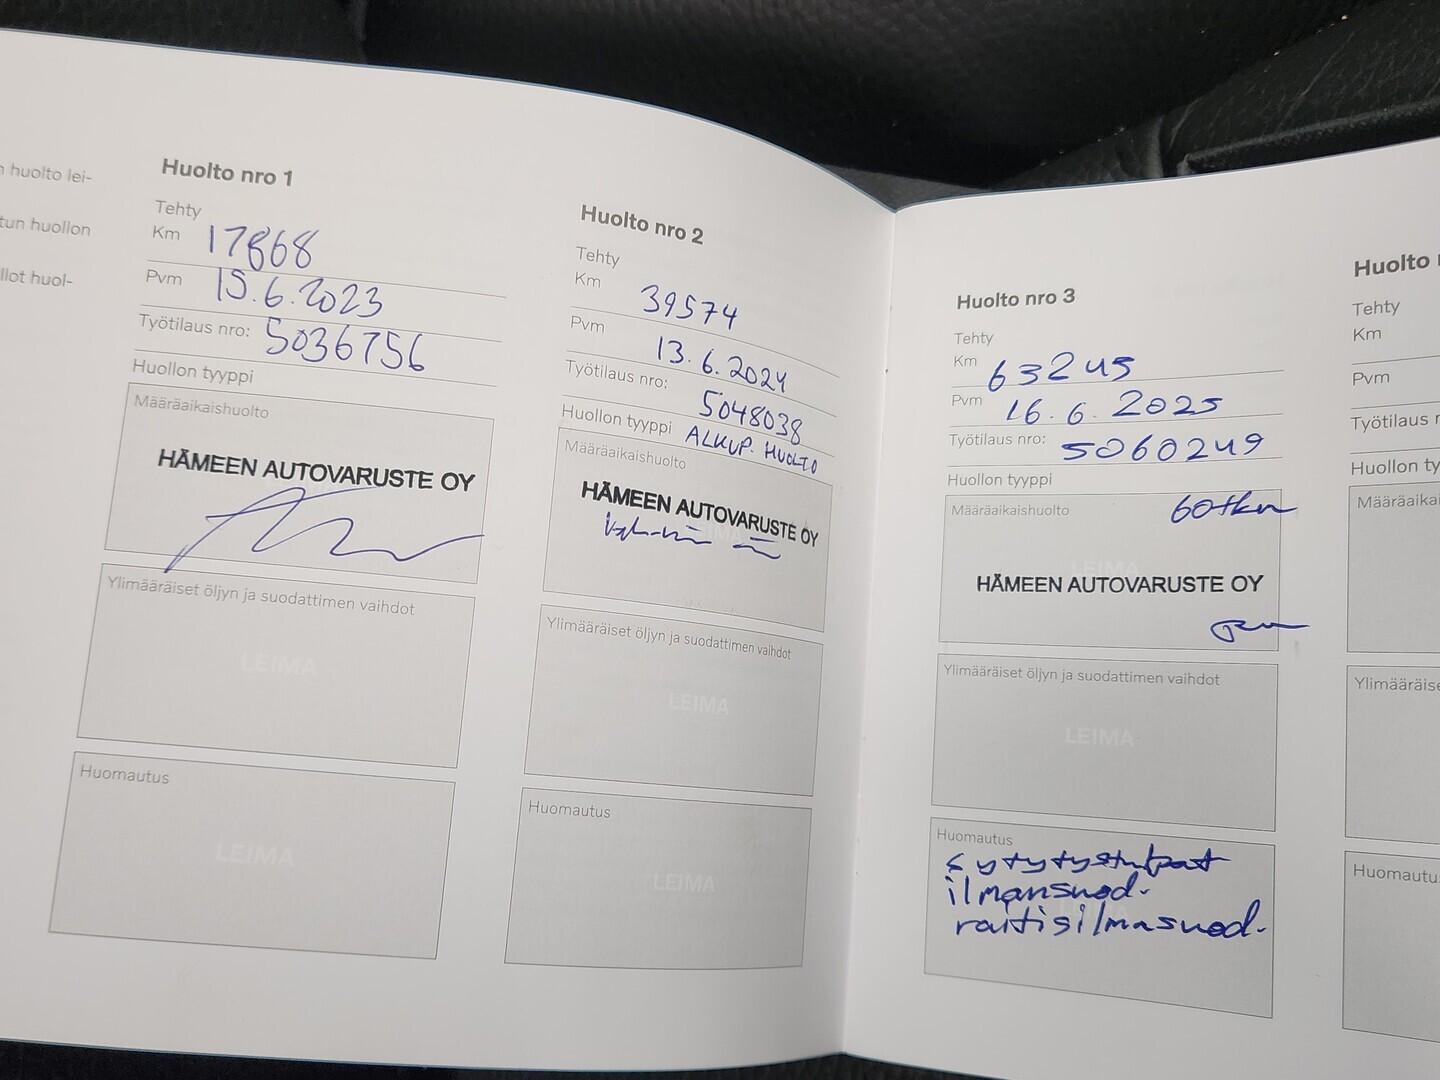 n huolto lei-
tun huollon
llot huol-
Huolto nro 1
Tehty
Km 17868
Pvm 15.6.2023
Työtilaus nro: 5036756
Huollon tyyppi
Määräaikaishuolto
HÄMEEN AUTOVARUSTE OY
Ylimääräiset öljyn ja suodattimen vaihdot
LEIMA
Huomautus
LEIMA
Huolto nro 2
Tehty
Km 39574
Pvm 13.6.2024
Työtilaus nro: 5048038
Huollon tyyppi ALKUP. HUOLTO
Määräaikaishuolto
HÄMEEN AUTOVARUSTE OY
LEIMA
Ylimääräiset öljyn ja suodattimen vaihdot
LEIMA
Huomautus
LEIMA
Huolto nro 3
Tehty
Km 63245
Pvm 16.6.2025
Työtilaus nro: 5060249
Huollon tyyppi
Määräaikaishuolto 60tkm
LEIMA
HÄMEEN AUTOVARUSTE OY
Ylimääräiset öljyn ja suodattimen vaihdot
LEIMA
Huomautus
sytytystulpat
ilmansuod.
raitisilmasuod.
Huolto
Tehty
Km
Pvm
Työtilaus n
Huollon ty
Määräaikai
Ylimääräise
Huomautu